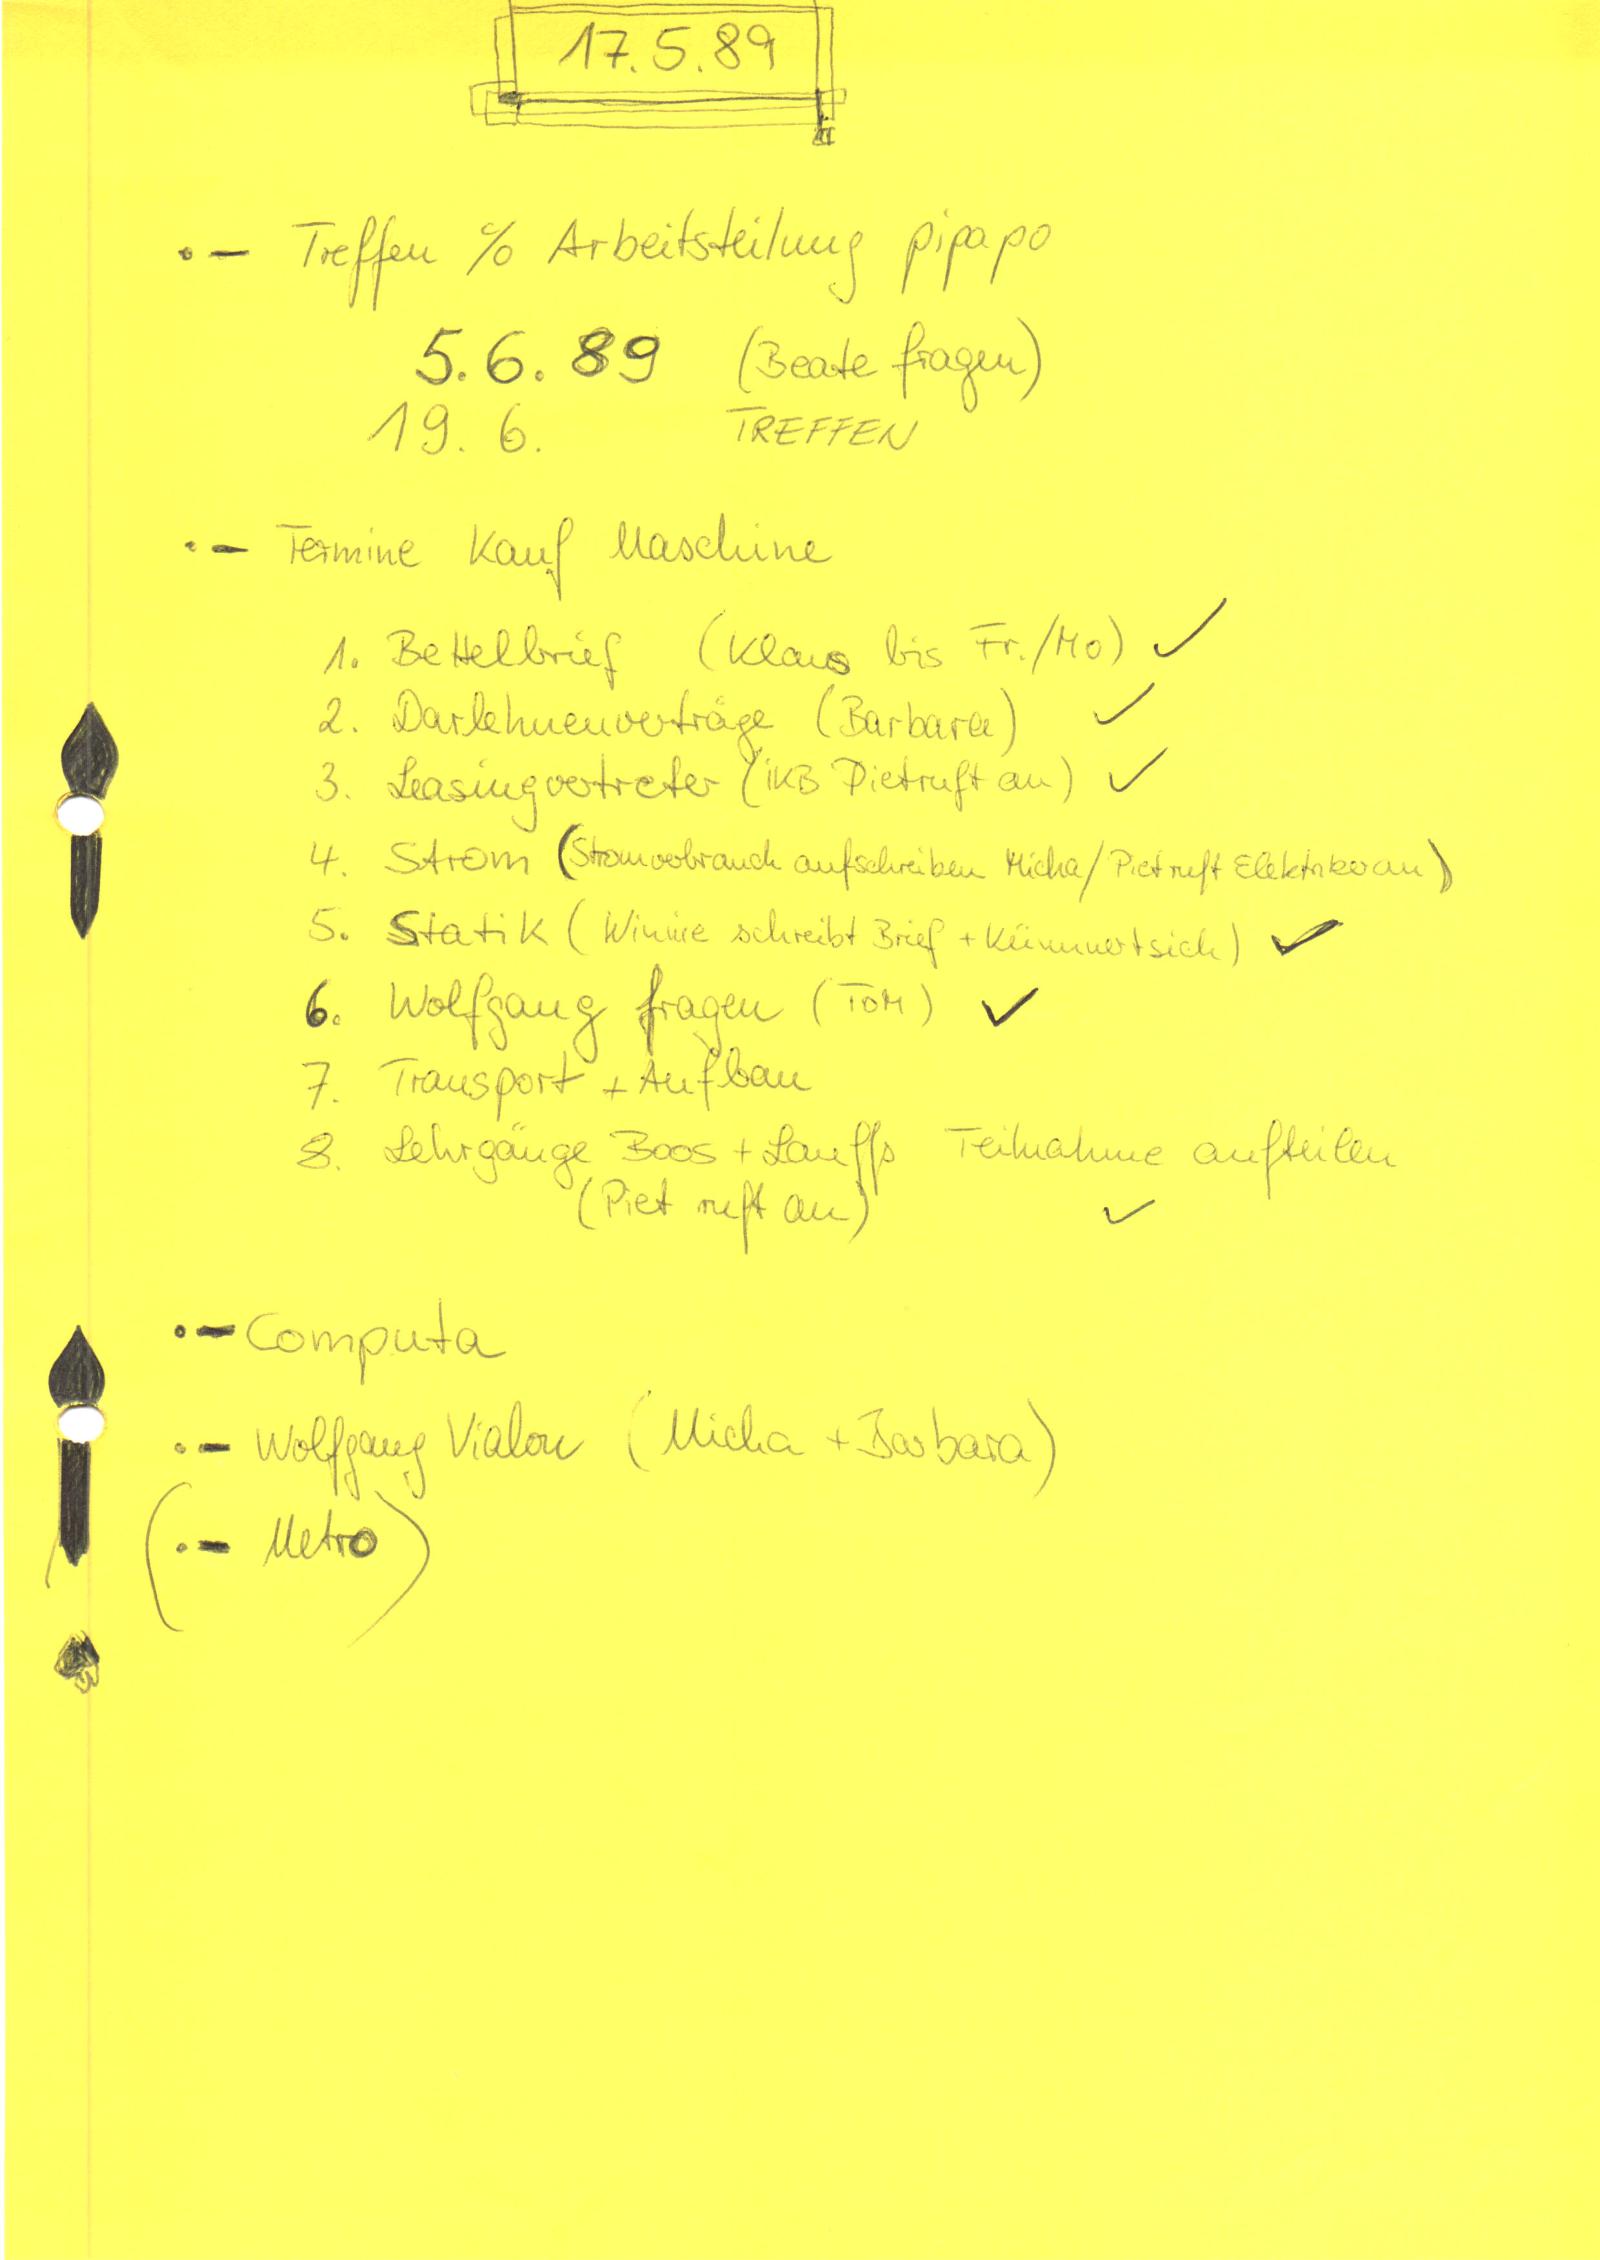 17.5.89
•– Treffen % Arbeitsteilung pipapo
5.6.89 (Beate fragen)
19.6. TREFFEN
•– Termine Kauf Maschine
1. Bettelbrief (Klaus bis Fr./Mo) ✓
2. Darlehnenverträge (Barbara) ✓
3. Leasingvertreter (IKB Piet ruft an) ✓
4. Strom (Stromverbrauch aufschreiben Micha/Piet ruft Elektriker an)
5. Statik (Winnie schreibt Brief + kümmert sich) ✓
6. Wolfgang fragen (TOM) ✓
7. Transport + Aufbau
8. Lehrgänge Boos + Lauffs Teilnahme aufteilen
(Piet ruft an) ✓
•– Computa
•– Wolfgang Vialon (Micha + Barbara)
(•– Metro)